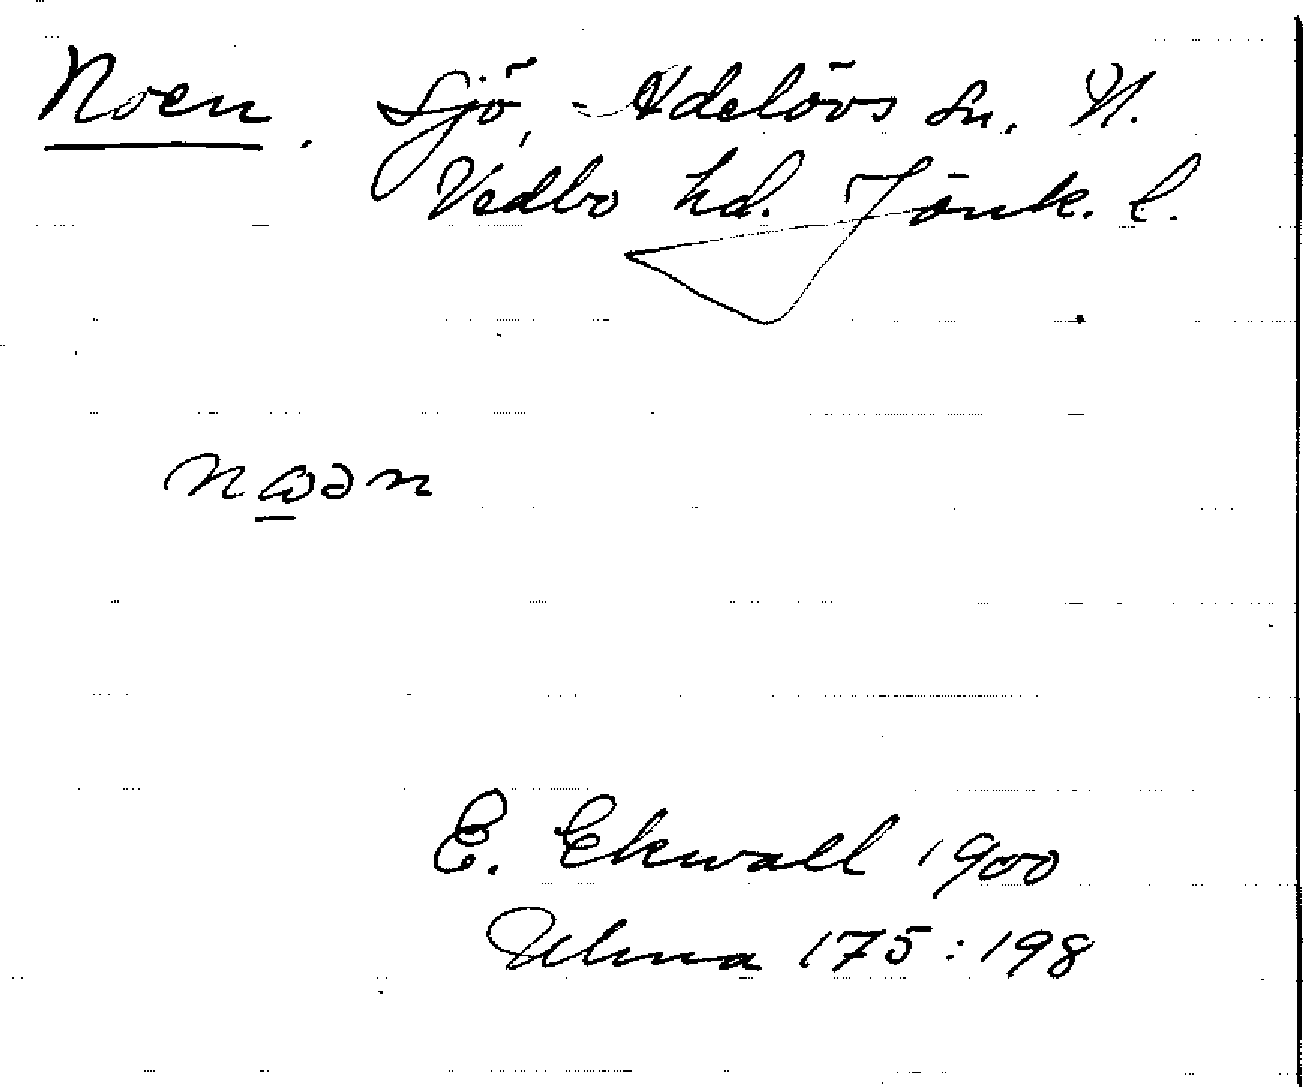 Noen. Sjö, Adelövs sn. N.
Vedbo hd. Jönk. l.
E. Ekwall 1900
Ulma 175:198